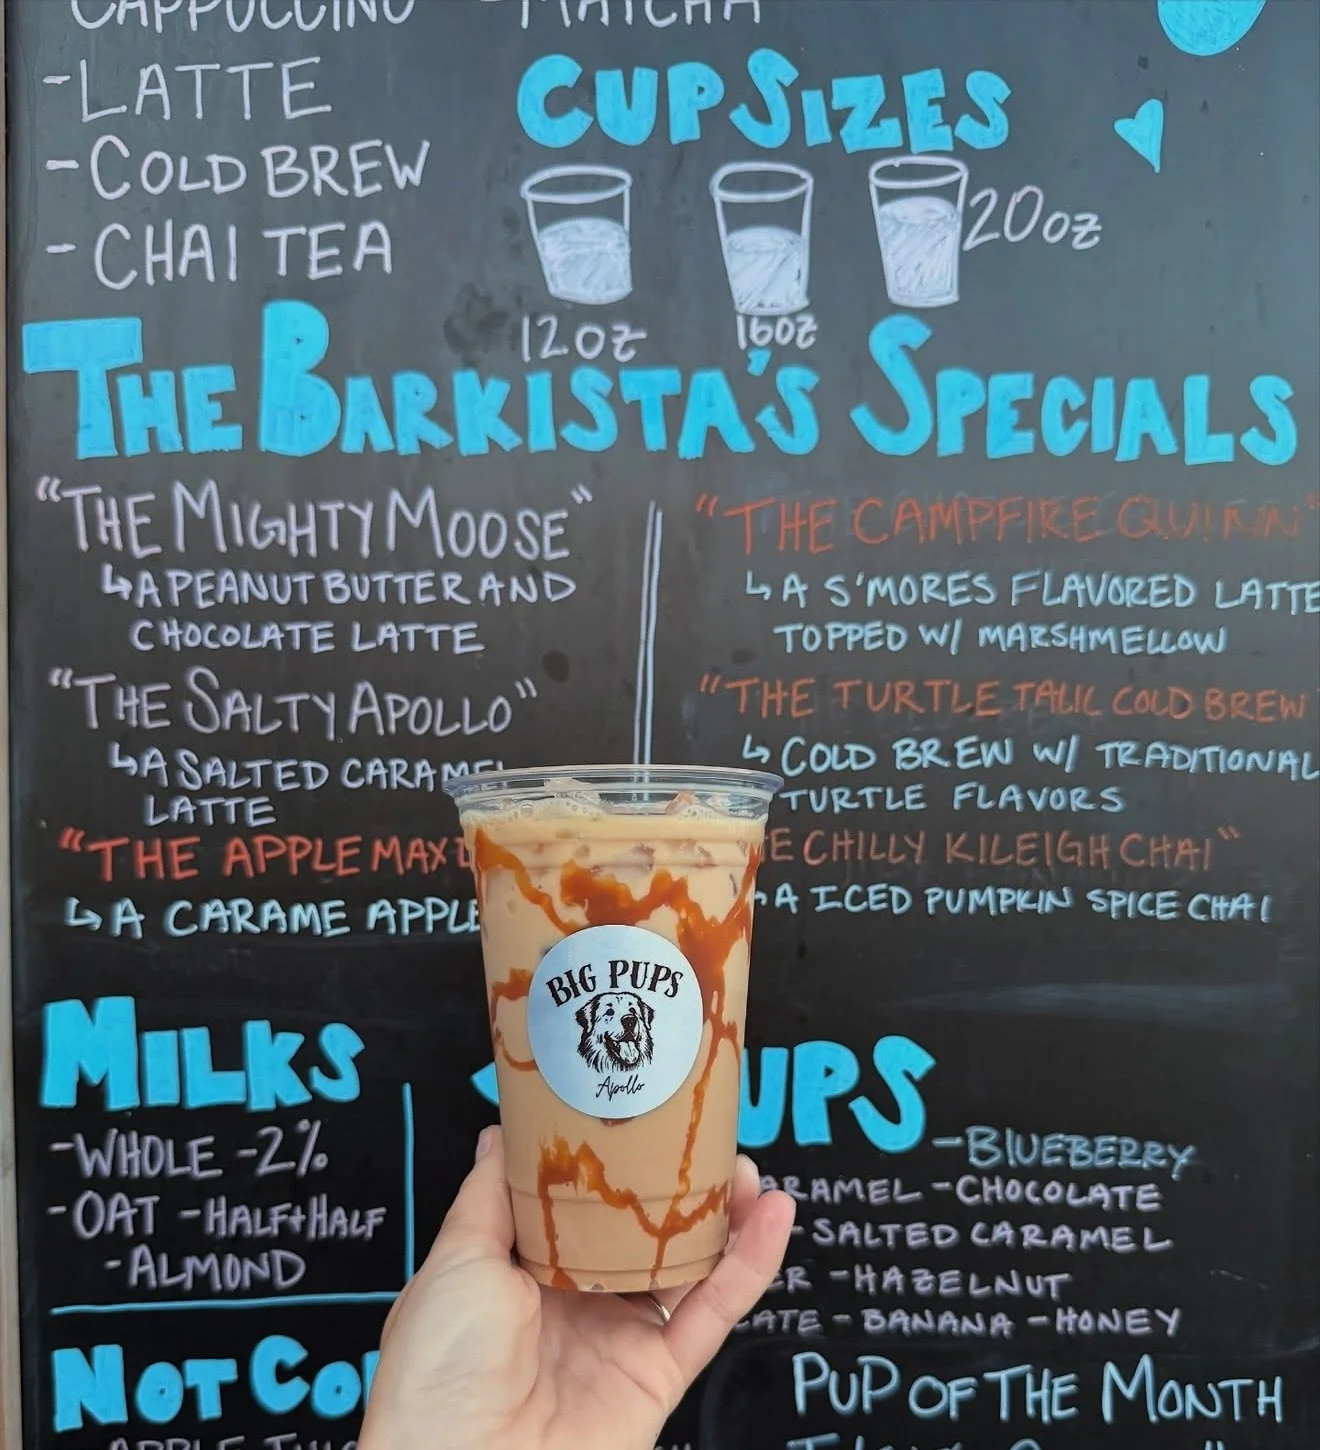 CAPPUCCINO -MATCHA
-LATTE
-COLD BREW
-CHAI TEA
CUP SIZES
12oz
16oz
20oz
THE BARKISTA'S SPECIALS
"THE MIGHTY MOOSE"
↳A PEANUT BUTTER AND
CHOCOLATE LATTE
"THE SALTY APOLLO"
↳A SALTED CARAMEL
LATTE
"THE APPLE MAX
↳A CARAME APPLE
"THE CAMPFIRE QUINN"
↳A S'MORES FLAVORED LATTE
TOPPED W/ MARSHMELLOW
"THE TURTLE COLD BREW
↳COLD BREW W/ TRADITIONAL
TURTLE FLAVORS
CHILLY KILEIGH CHAI"
A ICED PUMPKIN SPICE CHAI
BIG PUPS
Apollo
MILKS
-WHOLE -2%
-OAT -HALF+HALF
-ALMOND
UPS
-BLUEBERRY
ARAMEL -CHOCOLATE
-SALTED CARAMEL
-HAZELNUT
-BANANA -HONEY
NOT CO
PUP OF THE MONTH